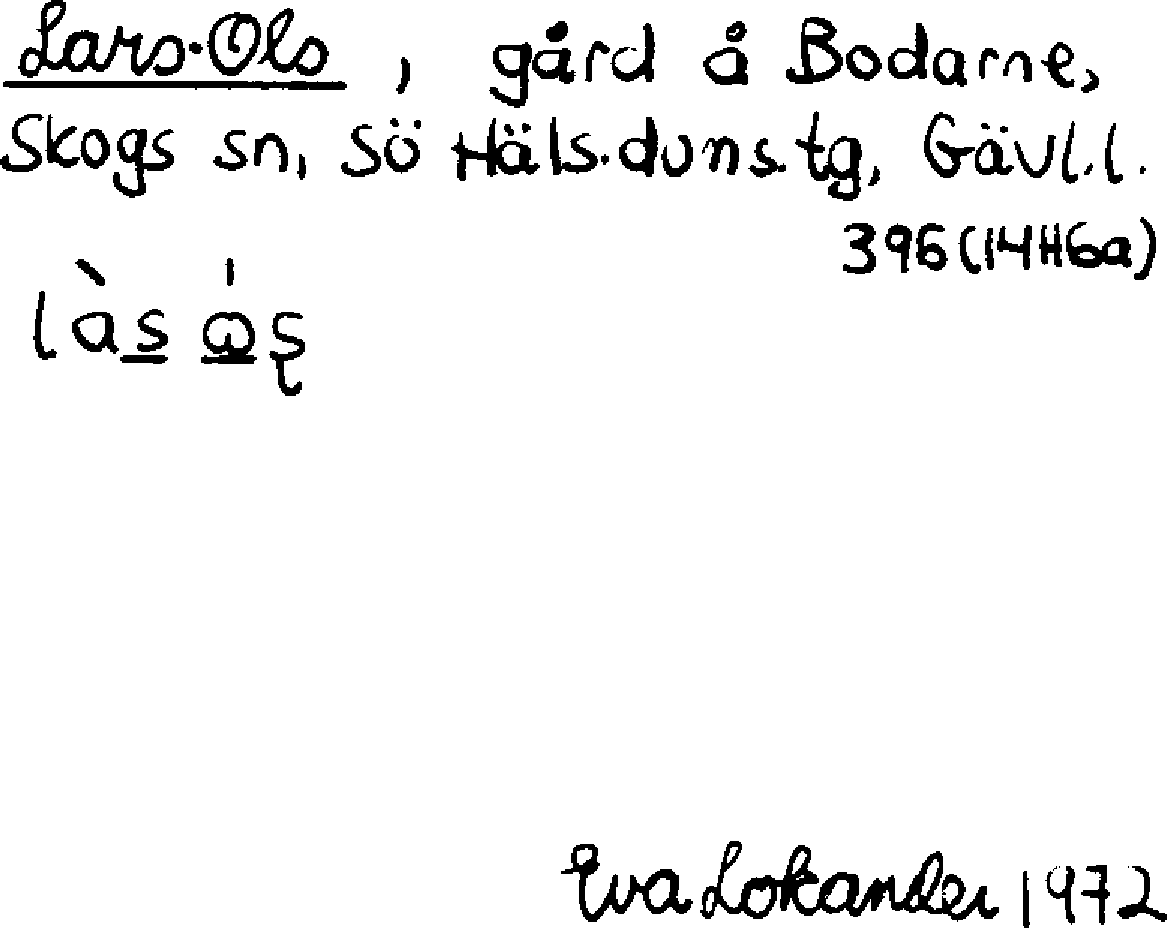 Lars-Ols, gård å Bodarne,
Skogs sn, Sö Häls. dvns. tg, Gävl. l.
396 (14H6a)
làs ω̇ʂ
Eva Lokander 1972